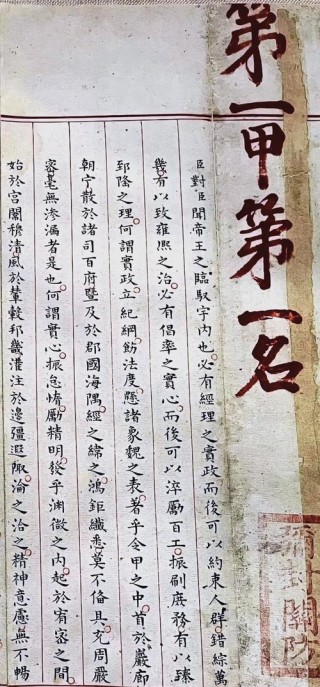 第一甲第一名
臣對臣聞帝王之臨馭宇内也必有經理之實政而後可以約束人群錯綜萬
幾有以致雍熙之治必有倡率之實心而後可以淬勵百工振刷庶務有以臻
郅隆之理何謂實政立紀綱飭法度懸諸象魏之表著乎令甲之中首於巖廊
朝宁散於諸司百府暨及於郡國海隅經之緯之鴻鉅纖悉莫不備具充周嚴
密毫無滲漏者是也何謂實心振怠惰勵精明發乎淵微之内起於宥密之間
始於宫闈穆清風於輦轂邦畿灌注於邊疆遐陬淪之洽之精神意慮無不暢
彌封關防